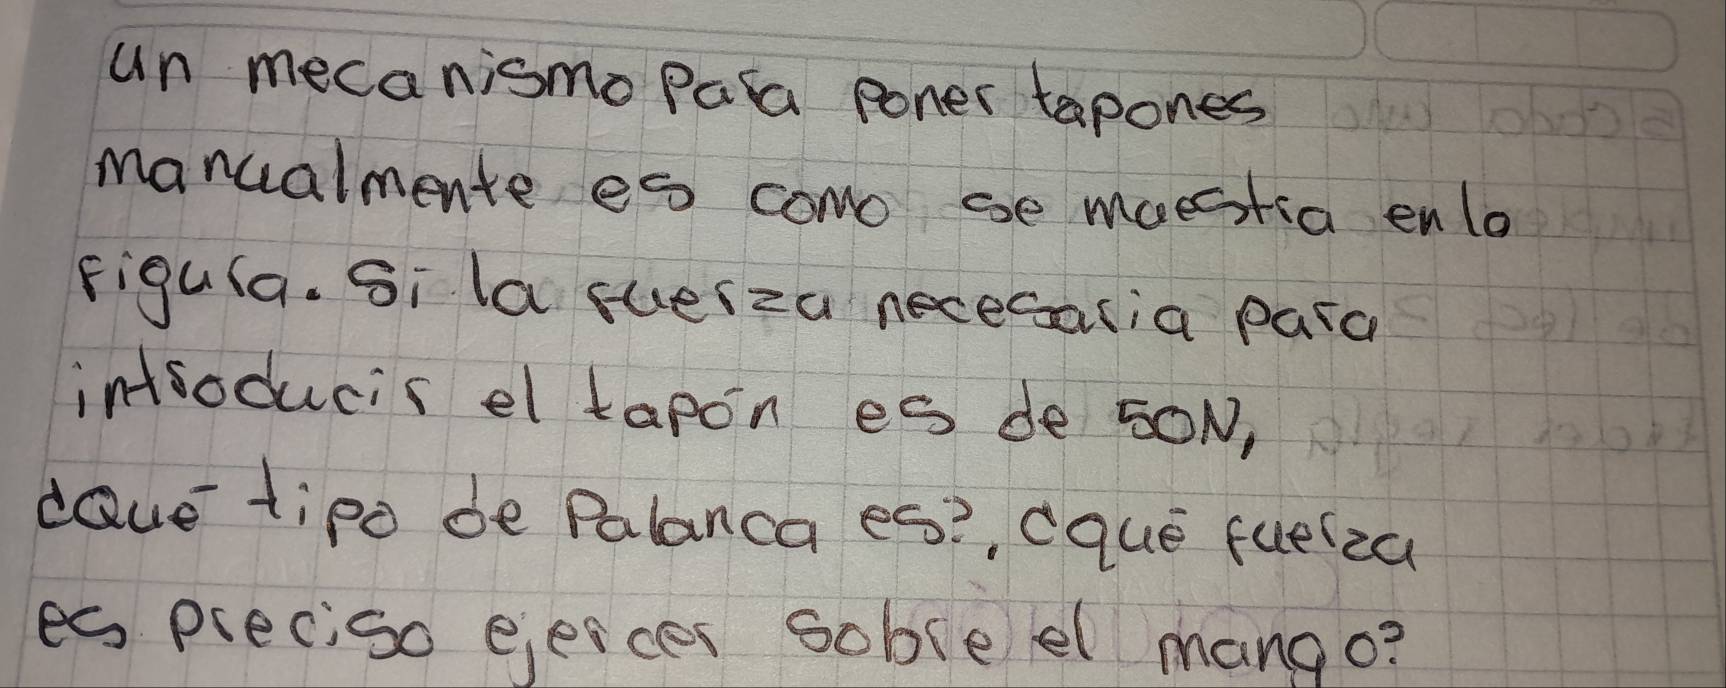 un mecanismo Para poner tapones
manualmente es como se muestra en lo
figura. Si la fuerza necesaria para
introducir el tapón es de 50N,
¿Qué tipo de Palanca es?, ¿qué fuerza
es preciso ejercer sobre el mango?